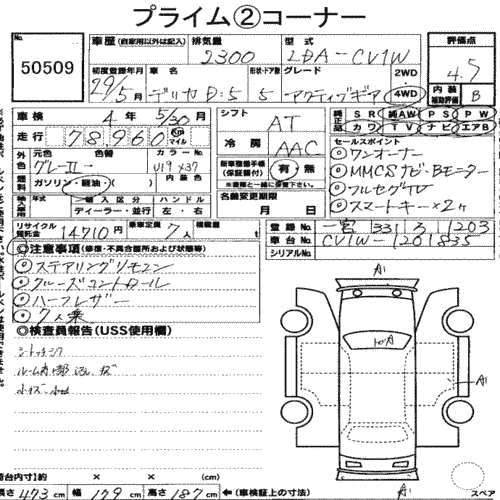 プライム②コーナー
No. 50509
車歴 (自家用以外は記入) 排気量 2300 型式 LDA-CV1W 評価点 4.5
初度登録年月 29/5月 車名 デリカD:5 形状・ドア数 5 グレード アクティブギア 2WD 4WD 内装補助評価 B
車検 4年 5/30月 シフト AT 純正品 SR 純AW PS PW
カワ TV ナビ エアB
走行 78960 Km マイル 冷房 AAC
セールスポイント
外色 元色 グレーⅡ 色替 U19 X37
◎ワンオーナー
燃料 ガソリン・軽油・( ) 内装色
新車整備手帳(保証書付) 有・無
※直接ご確認ください
◎MMCSナビ・Bモニター
◎フルセグTV
年式 輸入区分 ハンドル
ディーラー・並行 左・右
名義変更期限 月 日
◎スマートキー×2ヶ
リサイクル預託金 14710円 乗車定員 7人 積載量
登録No. 一宮 331 す 1203
車台No. CV1W-1201835
シリアルNo.
◎注意事項(修復・不具合箇所および状態等)
◎ステアリングリモコン
◎クルーズコントロール
◎ハーフレザー
◎7人乗
◎検査員報告(USS使用欄)
A1
A1
A1
荷台内寸)約 × × (cm)
長さ 473 cm 幅 179 cm 高さ 187 cm ←(車検証上の寸法) スペア